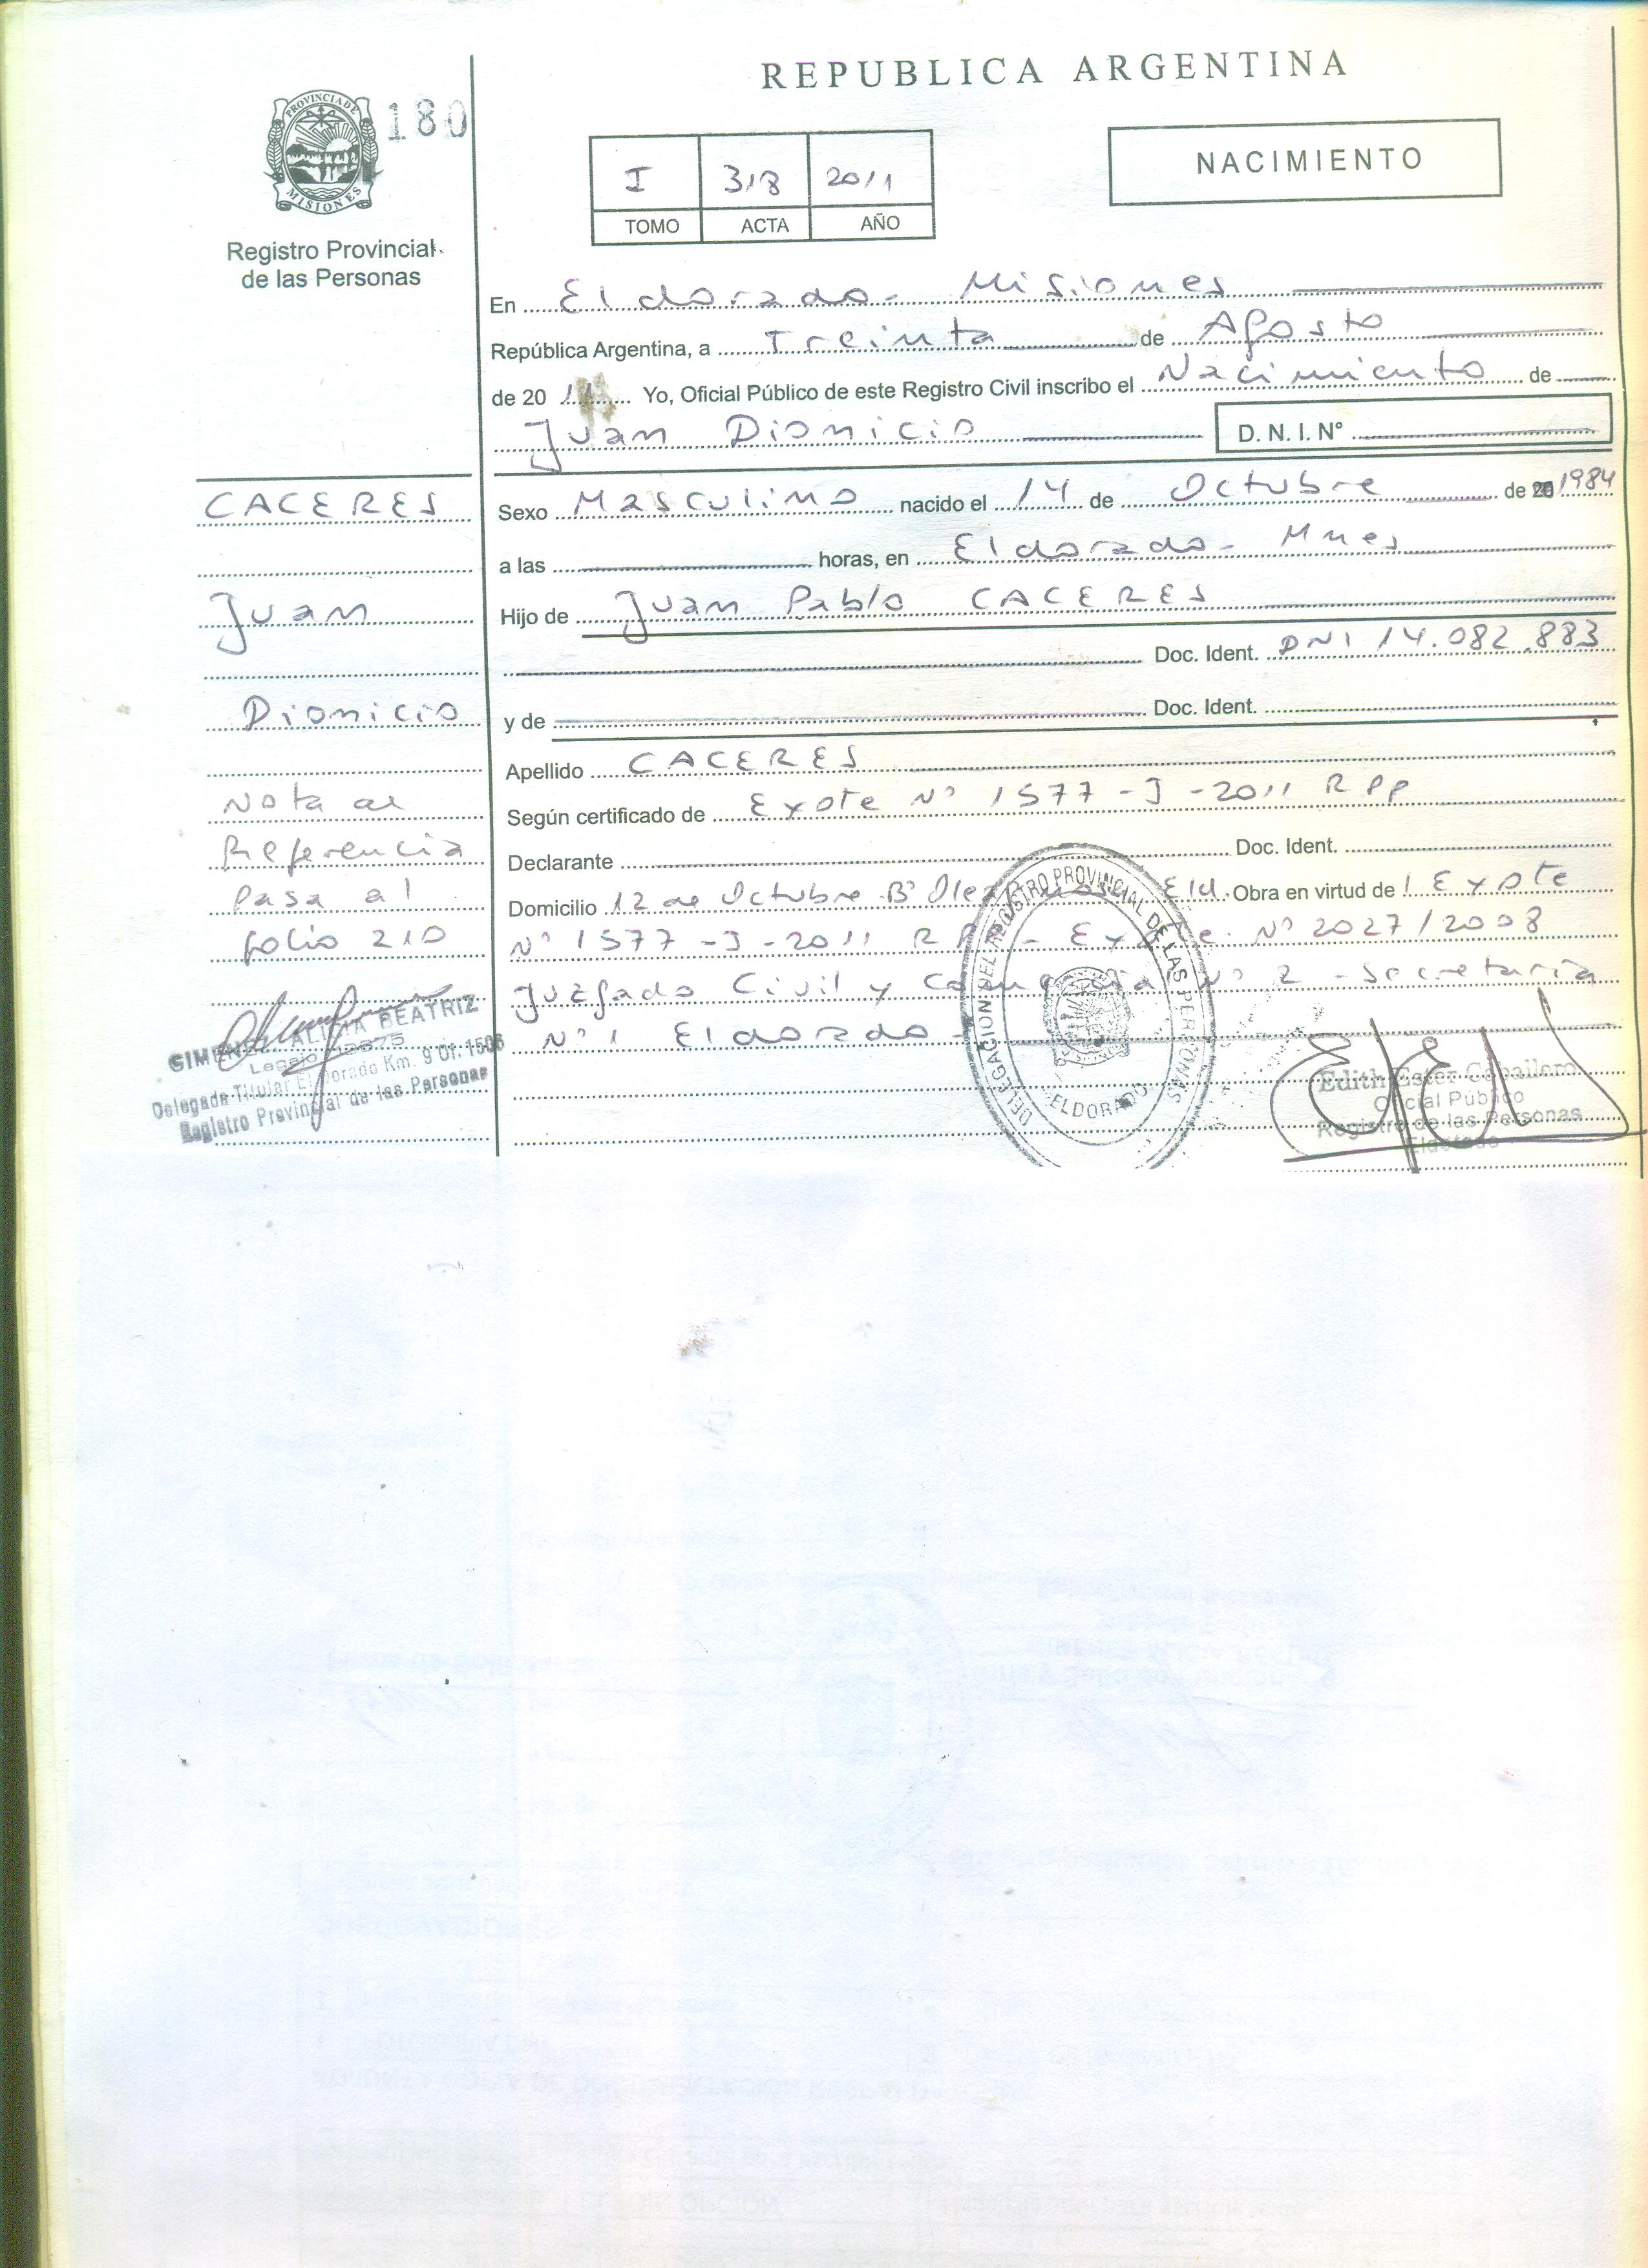 REPUBLICA ARGENTINA
PROVINCIA DE MISIONES
180
Registro Provincial
de las Personas
I 318 2011
TOMO ACTA AÑO
NACIMIENTO
En Eldorado - Misiones
República Argentina, a Treinta de Agosto
de 2011 Yo, Oficial Público de este Registro Civil inscribo el Nacimiento de
Juan Dionicio D. N. I. N°
CACERES
Juan
Dionicio
Nota de
Referencia
Pasa al
folio 210
Sexo Masculino nacido el 14 de Octubre de 1984
a las horas, en Eldorado - Mnes
Hijo de Juan Pablo CACERES
Doc. Ident. DNI 14.082.883
y de Doc. Ident.
Apellido CACERES
Según certificado de Expte N° 1577 - J - 2011 R PP
Declarante Doc. Ident.
Domicilio 12 de Octubre B° Eld. Obra en virtud del Expte
N° 1577 - J - 2011 R PP - Expte. N° 2027/2008
Juzgado Civil y Comercial N° 2 - Secretaria
N° 1 Eldorado -
DELEGACION DEL REGISTRO PROVINCIAL DE LAS PERSONAS
ELDORADO
ALICIA BEATRIZ
Legajo
Delegada Titular Eldorado Km. 9 Of. 1506
Registro Provincial de las Personas
Edith Ester Caballero
Oficial Público
Registro de las Personas
Eldorado